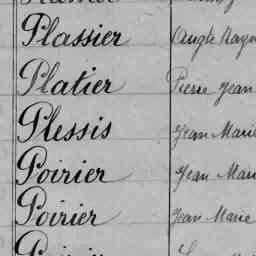 Plassier
Platier Pierre Jean
Plessis Jean Marie
Poirier Jean Mari
Poirier Jean Marie